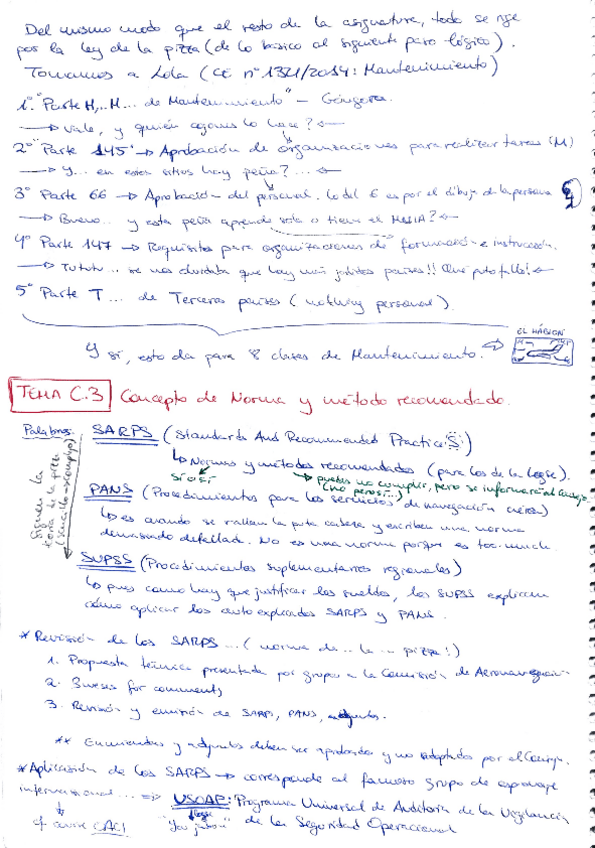 Del mismo modo que el resto de la asignatura, todo se rige
por la ley de la pizza (de lo básico al siguiente paso lógico).
Tomamos a Lola (CE nº 1321/2014: Mantenimiento)
1.º "Parte M, M... de Mantenimiento" - Góngora.
→ Vale, y quién lo hace? ←
2º Parte 145 → Aprobación de organizaciones para realizar tareas (M)
→ Y... en estos sitios hay peña? ... ←
3º Parte 66 → Aprobación del personal. Lo del 6 es por el dibujo de la persona
→ Bueno... y esta peña aprende sola o tiene el MESIA? ←
4º Parte 147 → Requisitos para organizaciones de formación e instrucción.
→ Tututu... se nos olvidaba que hay más países!! Qué puto fallo! ←
5º Parte T... de Terceros países (nothing personal).
EL HABSION
Y sí, esto da para 8 clases de Mantenimiento.
TEMA C.3 Concepto de Norma y método recomendado.
Palabros: SARPS (Standards And Recommended Practices)
↳ Normas y métodos recomendados (para los de la logse).
sí o sí → puedes no cumplir, pero se informará al Consejo
(no pero sí...)
PANS (Procedimientos para los servicios de navegación aérea)
↳ es cuando se rallan la puta cabeza y escriben una norma
demasiado detallada. No es una norma porque es too much.
siguen la
teoría de la pizza
SUPSS (Procedimientos suplementarios regionales)
↳ pues como hay que justificar los sueldos, los SUPSS explican
cómo aplicar los autoexplicados SARPS y PANS.
* Revisión de los SARPS... (norma de... la... pizza!)
1. Propuesta técnica presentada por grupo a la Comisión de Aeronavegación
2. 3 meses for comments
3. Revisión y emisión de SARPS, PANS, adjuntos.
** Enmiendas y adjuntos deben ser aprobados y no adoptados por el Consejo.
* Aplicación de los SARPS → corresponde al famoso grupo de espionaje
internacional... ⇒ USOAP: Programa Universal de Auditoría de la Vigilancia
of course CACI "You jabón" de la Seguridad Operacional